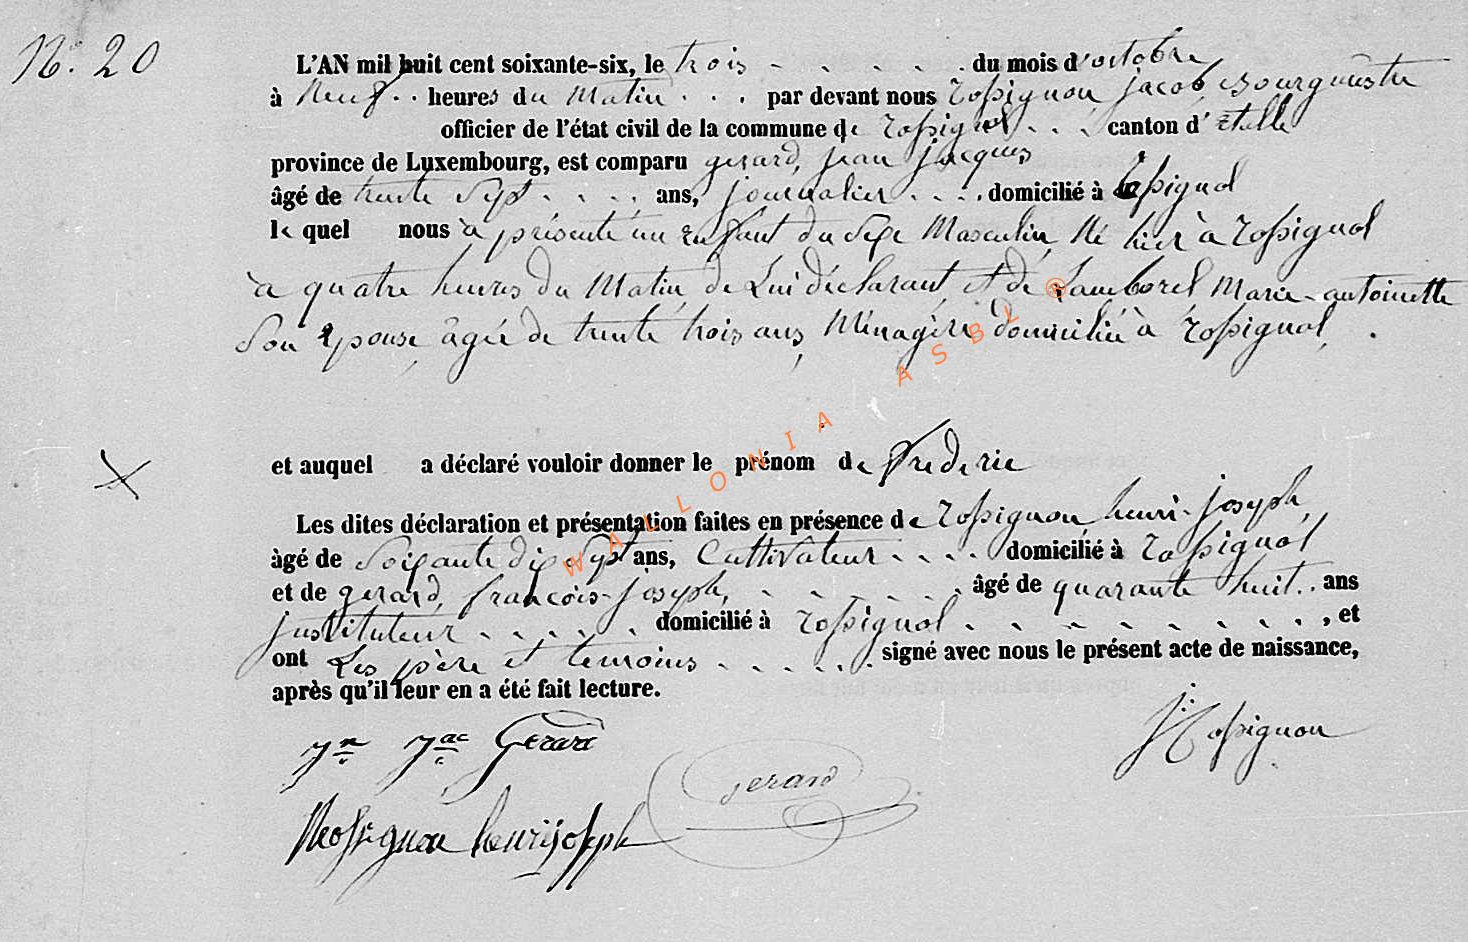 N. 20
L'AN mil huit cent soixante-six, le trois - - - - - du mois d'octobre
à Neuf . . heures du Matin . . . par devant nous Rossignon, jacob, Bourgmestre
officier de l'état civil de la commune de Rossignol . . . canton d'Etalle
province de Luxembourg, est comparu gerard, jean jacques
âgé de trente sept . . . . ans, journalier . . . . domicilié à Rossignol
lequel nous à présenté un Enfant du Sexe Masculin, Né hier à Rossignol
à quatre heures du Matin, de Lui déclarant et de Lamborel Marie-antoinette
Son Epouse, âgée de trente trois ans, Ménagère domiciliée à Rossignol, .
et auquel a déclaré vouloir donner le prénom de frederic
Les dites déclaration et présentation faites en présence de Rossignon henri-joseph,
âgé de Soixante dix Sept ans, Cultivateur . . . . domicilié à Rossignol
et de gerard, françois-joseph, - - - - - - - âgé de quarante huit . . ans
instituteur - - - - - domicilié à Rossignol - - - - - - - - - , et
ont Les père et temoins - - - - - - signé avec nous le présent acte de naissance,
après qu'il leur en a été fait lecture.
Jn Jac Gerard
J: Rossignon
gerard
Rossignon henrijoseph
WALLONIA ASBL ®